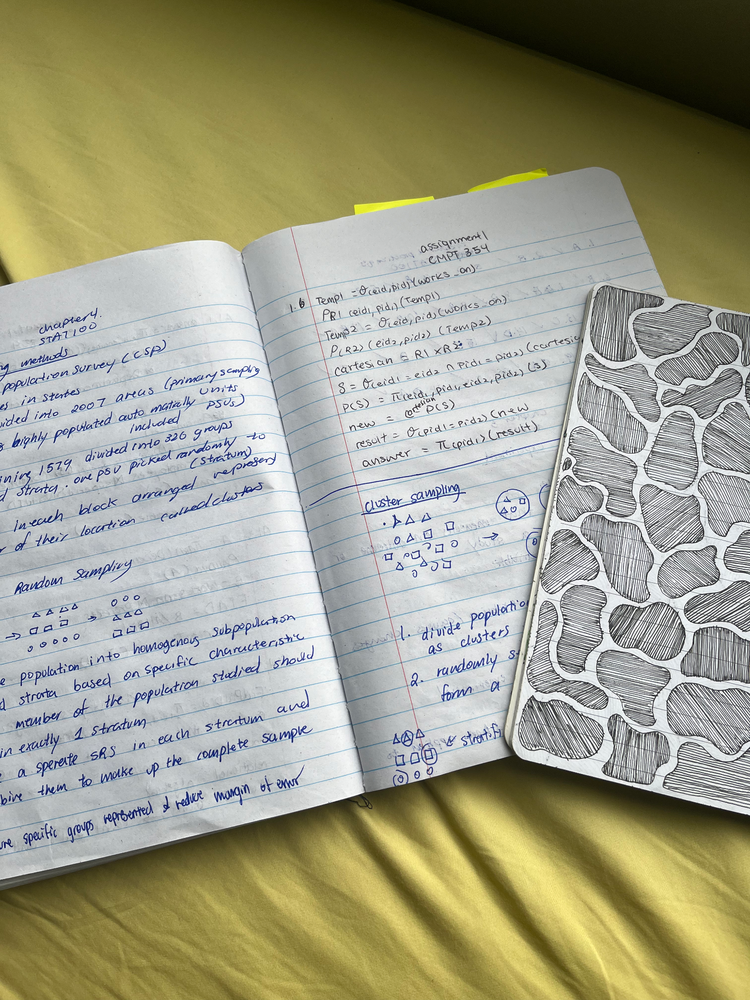 chapter 4.
STAT 100
methods
population survey (CSP)
in states
into 2007 areas (primary sampling
highly populated automatially units
included PSUs)
1579 divided into 326 groups
strata. one psu picked randomly to
(stratum) represent
in each block arranged
of their location called clusters
Random Sampling
population into homogenous subpopulation
strata based on specific characteristic
member of the population studied should
in exactly 1 stratum
a sperate SRS in each stratum and
them to make up the complete sample
specific groups represented & reduce margin of error
assignment 1
CMPT 354
1.6 Temp1 = σ(eid, pid)(works_on)
ρR1 (eid1, pid1)(Temp1)
Temp2 = σ(eid, pid)(works_on)
ρ(R2) (eid2, pid2) (Temp2)
cartesian = R1 x R2
S = σ(eid1 = eid2 ∩ pid1 = pid2) (cartesian
ρ(S) = π(eid1, pid1, eid2, pid2) (S)
new = cartesian ρ(S)
result = σ(pid1 = pid2) (new
answer = π(pid1)(result)
cluster sampling
1. divide population
as clusters
2. randomly
form a